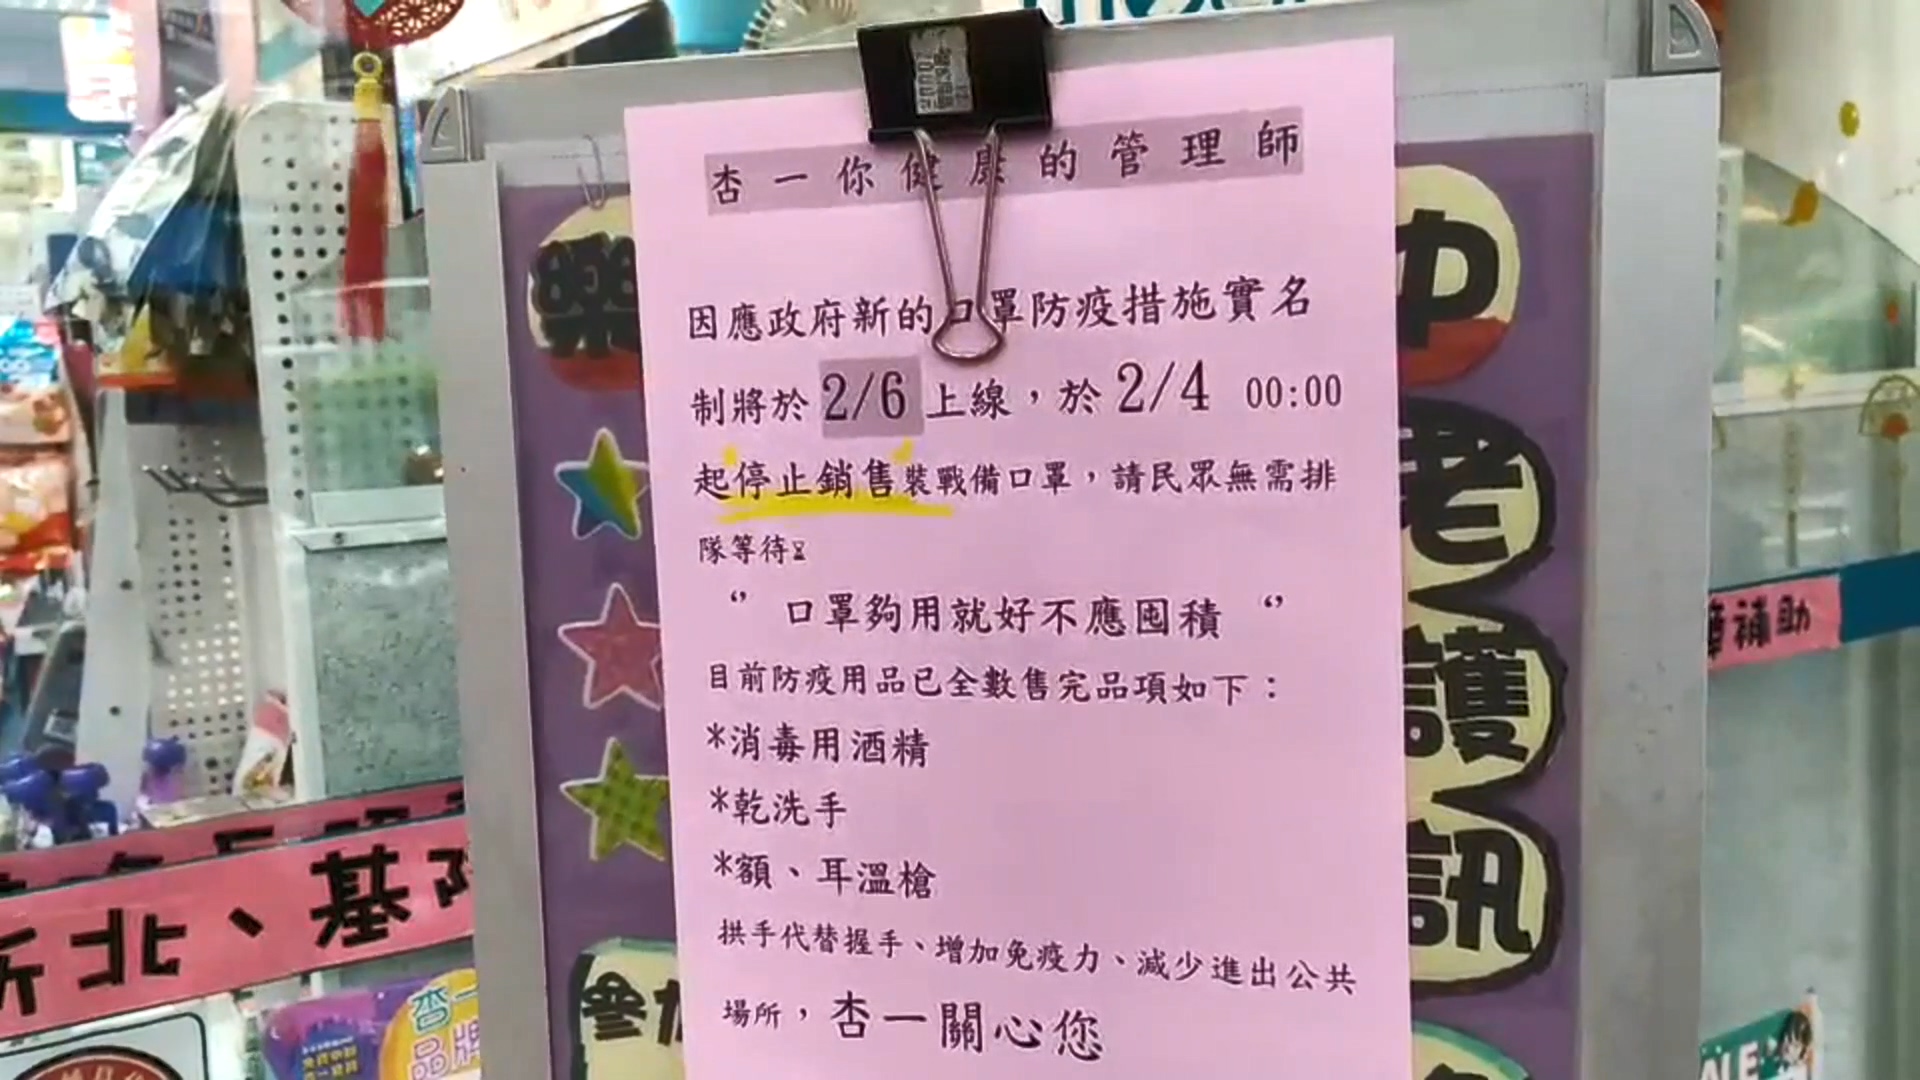 杏一你健康的管理師
因應政府新的口罩防疫措施實名
制將於 2/6 上線，於 2/4 00:00
起停止銷售裝戰備口罩，請民眾無需排
隊等待⌛
“ 口罩夠用就好不應囤積 “
目前防疫用品已全數售完品項如下：
*消毒用酒精
*乾洗手
*額、耳溫槍
拱手代替握手、增加免疫力、減少進出公共
場所，杏一關心您
樂
中
老
護
訊
補助
北、基
杏一
品牌
參加